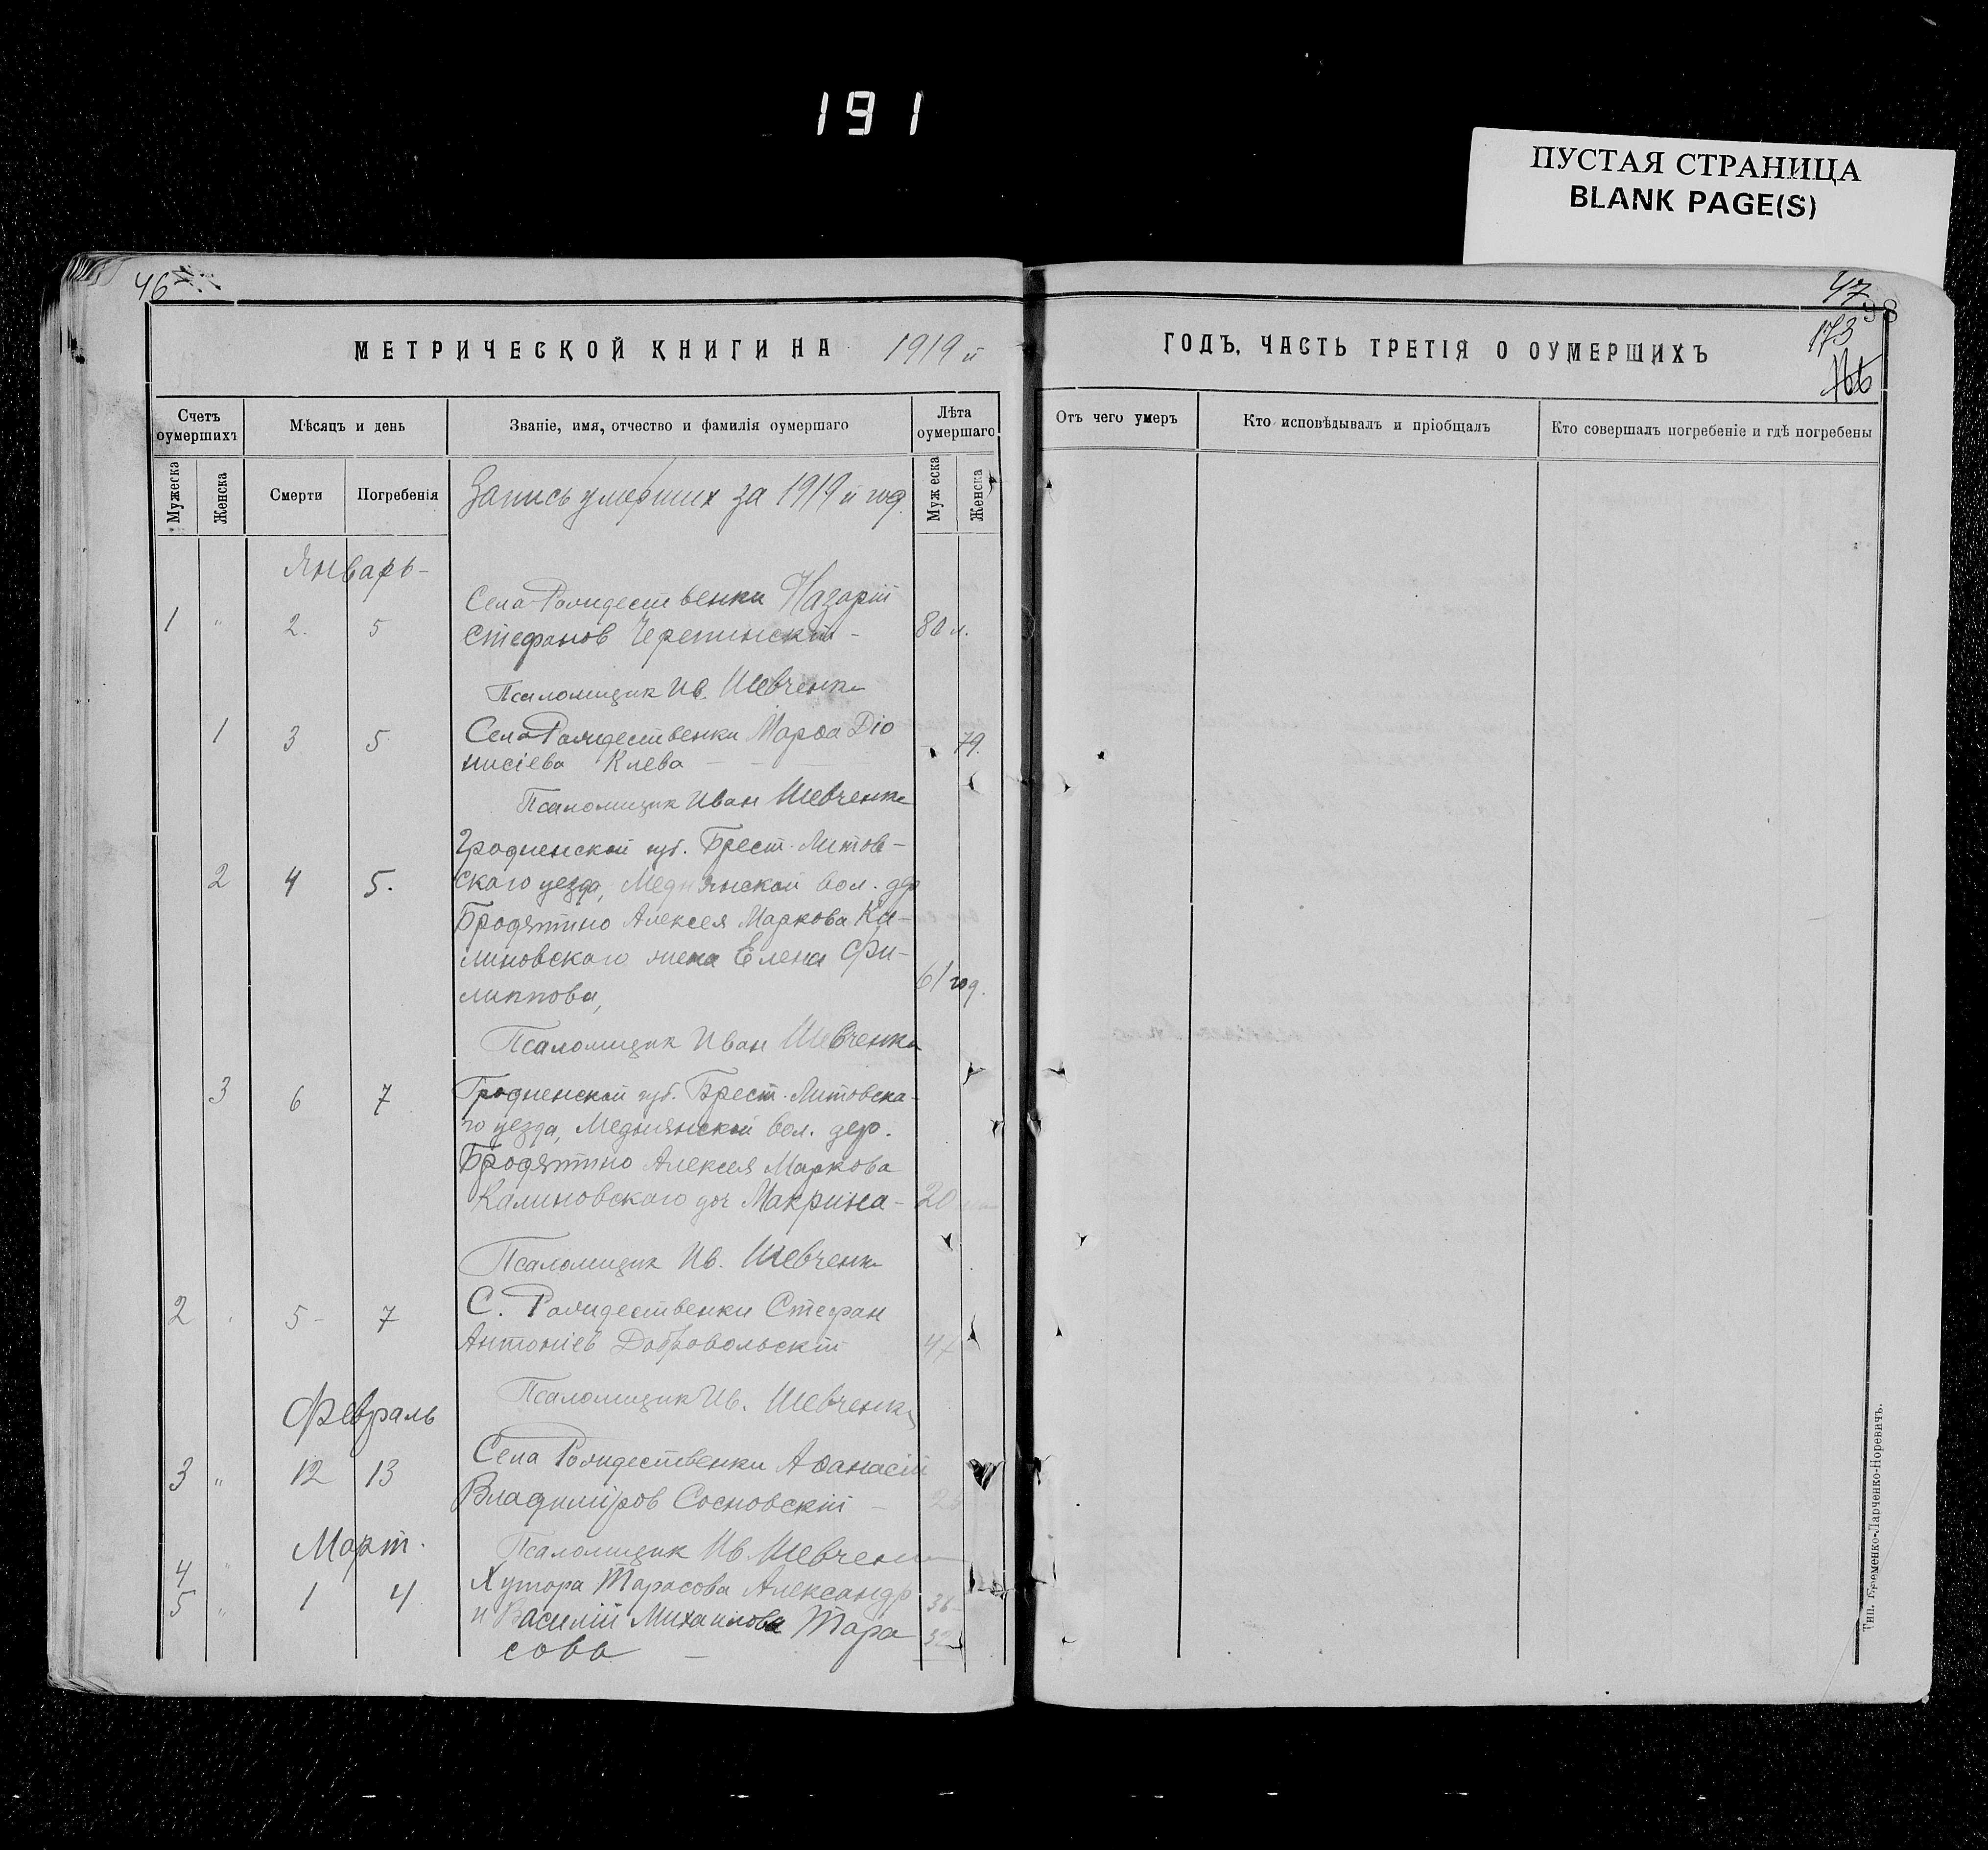 191
ПУСТАЯ СТРАНИЦА
BLANK PAGE(S)
46
47
98
173
МЕТРИЧЕСКОЙ КНИГИ НА 1919 й
ГОДЪ, ЧАСТЬ ТРЕТІЯ О ОУМЕРШИХЪ
Счетъ оумершихъ
Мѣсяцъ и день
Званіе, имя, отчество и фамилія оумершаго
Лѣта оумершаго
Отъ чего умеръ
Кто исповѣдывалъ и пріобщалъ
Кто совершалъ погребеніе и гдѣ погребены
Мужеска
Женска
Смерти
Погребенія
Запись умерших за 1919 й год.
Мужеска
Женска
Январь-
Села Рождественки Назарій
1 " 2. 5 Стефанов Черепинскій - 80 л.
Псаломщик Ив. Шевченко
1 3 5 Села Рождественки Марѳа Діо 79.
нисіева Клева
Псаломщик Иван Шевченко
Гродненской губ. Брест-Литов-
2 4 5. ского уезда, Меднянской вол. дер
Бродятино Алексея Маркова Ка-
линовского жена Елена Фи-
липпова, 61 год.
Псаломщик Иван Шевченко
3 6 7 Гродненской губ. Брест-Литовска-
го уезда, Меднянской вол. дер.
Бродятино Алексея Маркова
Калиновского доч Макрина - 20
Псаломщик Ив. Шевченко
2 5- 7 С. Рождественки Стефан
Антоніев Добровольскій
Псаломщик Ив. Шевченко
Февраль
3 " 12 13 Села Рождественки Аѳанасій
Владиміров Сосновскій -
Март.
Псаломщик Ив. Шевченко
4 " Хутора Тарасова Александр
5 " 1 4 и Василій Михаилова Тара
сова -
Тип. Еременко-Ларченко-Норевичъ.